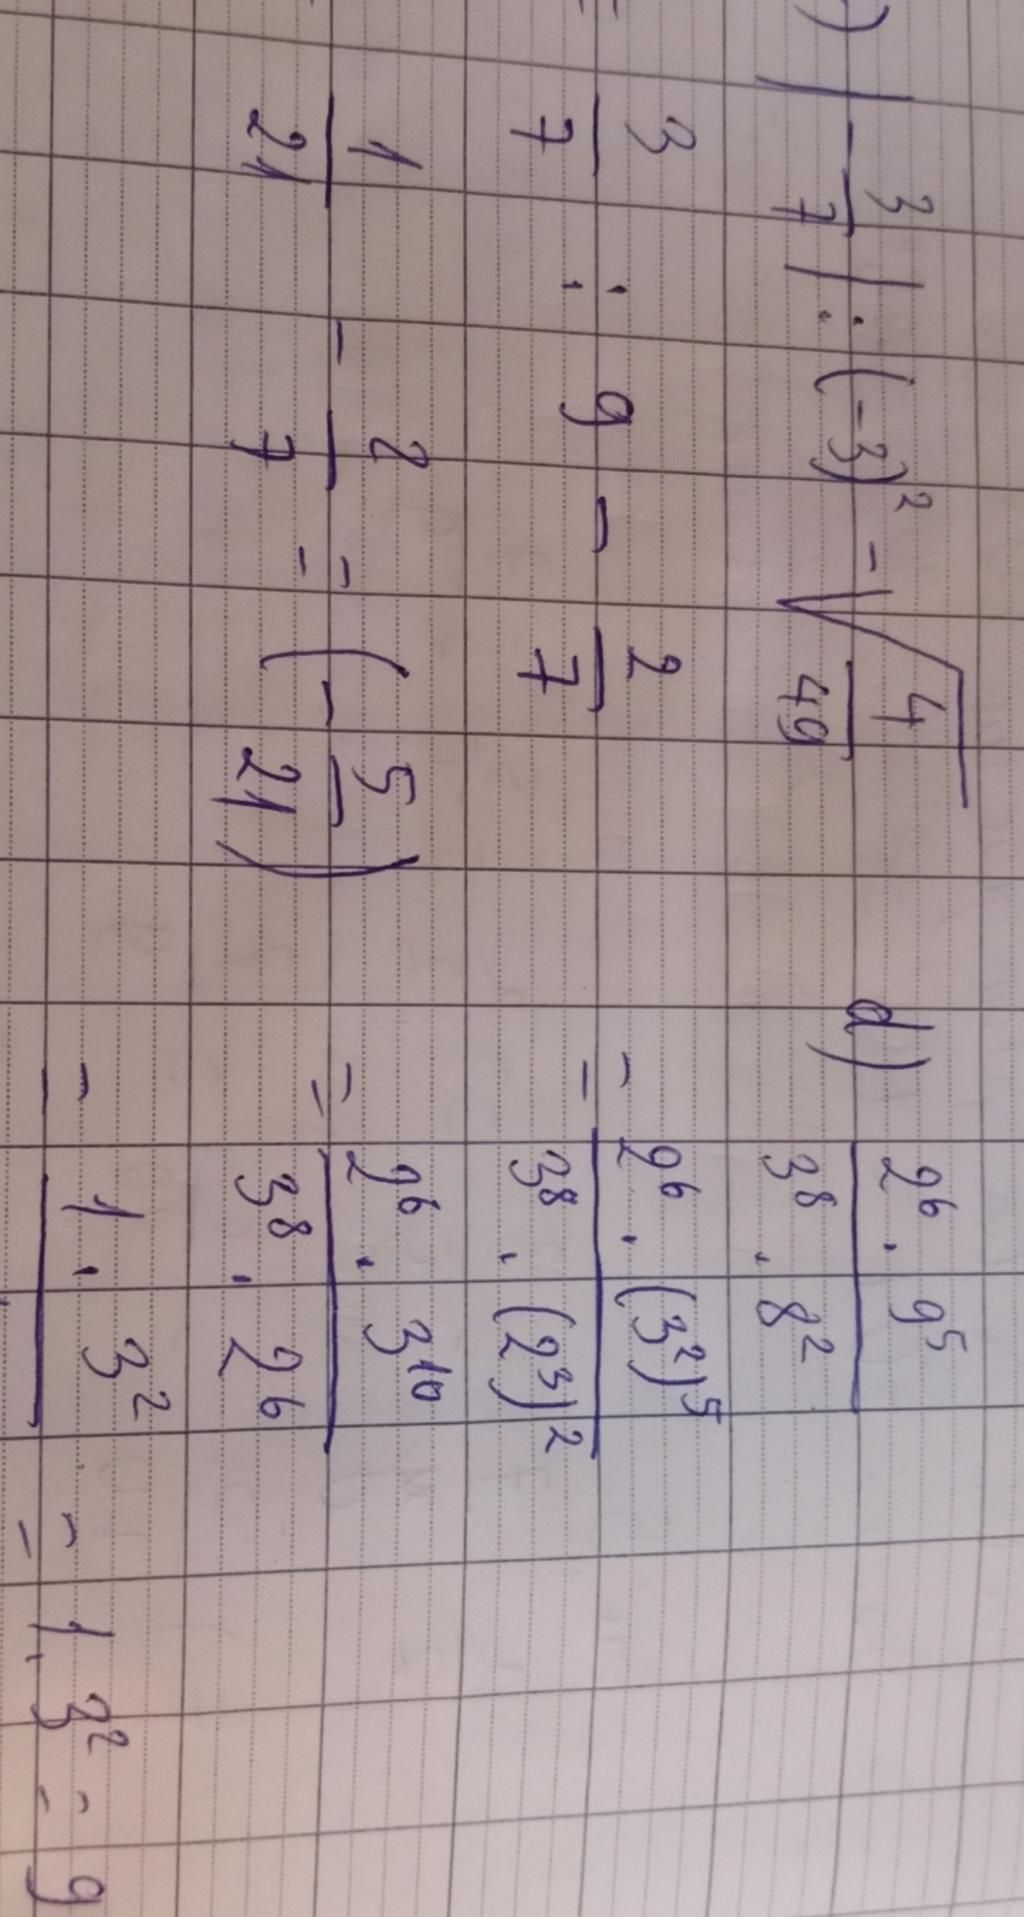 ) |-3/7| : (-3)² - √(4/49)
= 3/7 : 9 - 2/7
1/21 - 2/7 = (-5/21)
d) 2⁶ . 9⁵ / 3⁸ . 8²
= 2⁶ . (3²)⁵ / 3⁸ . (2³)²
= 2⁶ . 3¹⁰ / 3⁸ . 2⁶
= 1 . 3² = 1 . 3² = 9